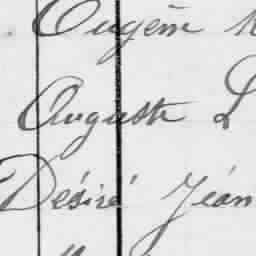 Eugène
Auguste L
Désiré Jéan